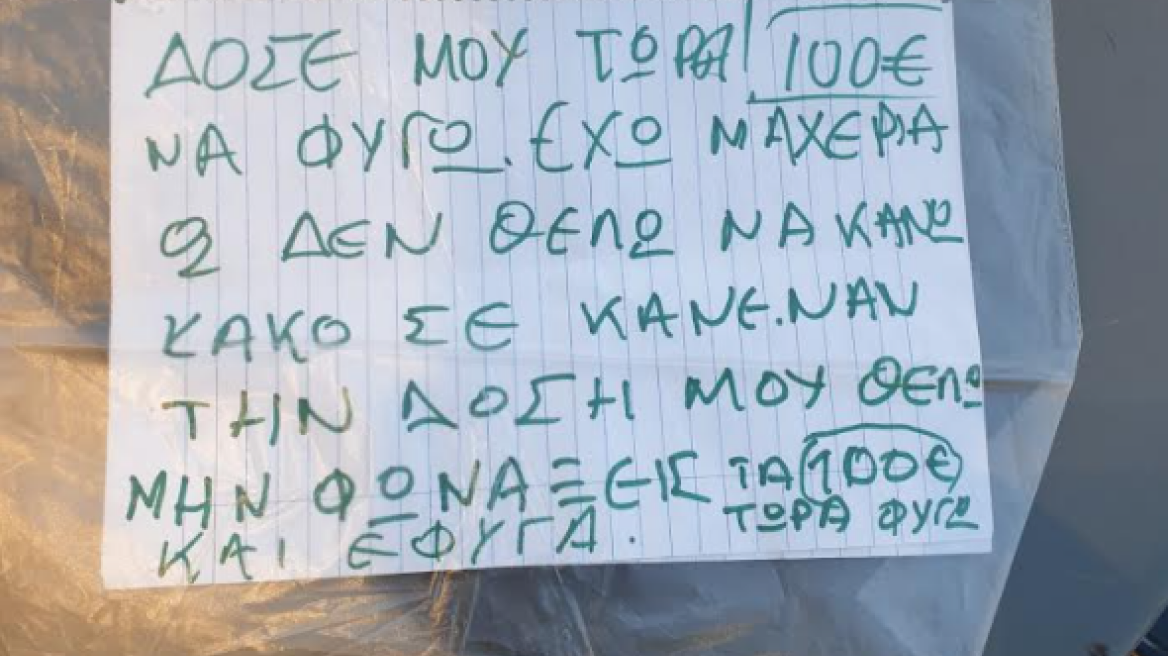 ΔΟΣΕ ΜΟΥ ΤΩΡΑ! 100€
ΝΑ ΦΥΓΩ. ΕΧΩ ΜΑΧΕΡΙΑ
ΔΕΝ ΘΕΛΩ ΝΑ ΚΑΝΩ
ΚΑΚΟ ΣΕ ΚΑΝΕ.ΝΑΝ
ΤΗΝ ΔΟΣΗ ΜΟΥ ΘΕΛΩ
ΜΗΝ ΦΩΝΑΞΕΙΣ ΤΑ 100€
ΚΑΙ ΕΦΥΓΑ. ΤΩΡΑ ΦΥΓΩ